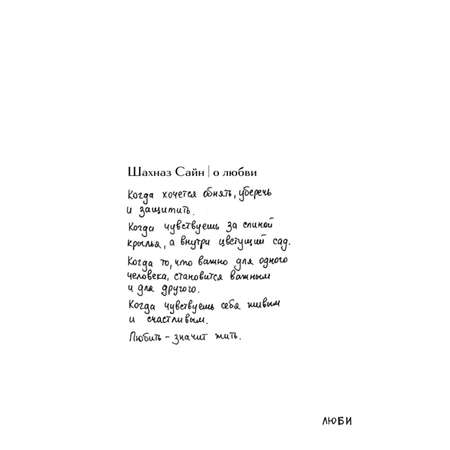 Шахназ Сайн | о любви
Когда хочется обнять, уберечь
и защитить.
Когда чувствуешь за спиной
крылья, а внутри цветущий сад.
Когда то, что важно для одного
человека, становится важным
и для другого.
Когда чувствуешь себя живым
и счастливым.
Любить – значит жить.
ЛЮБИ